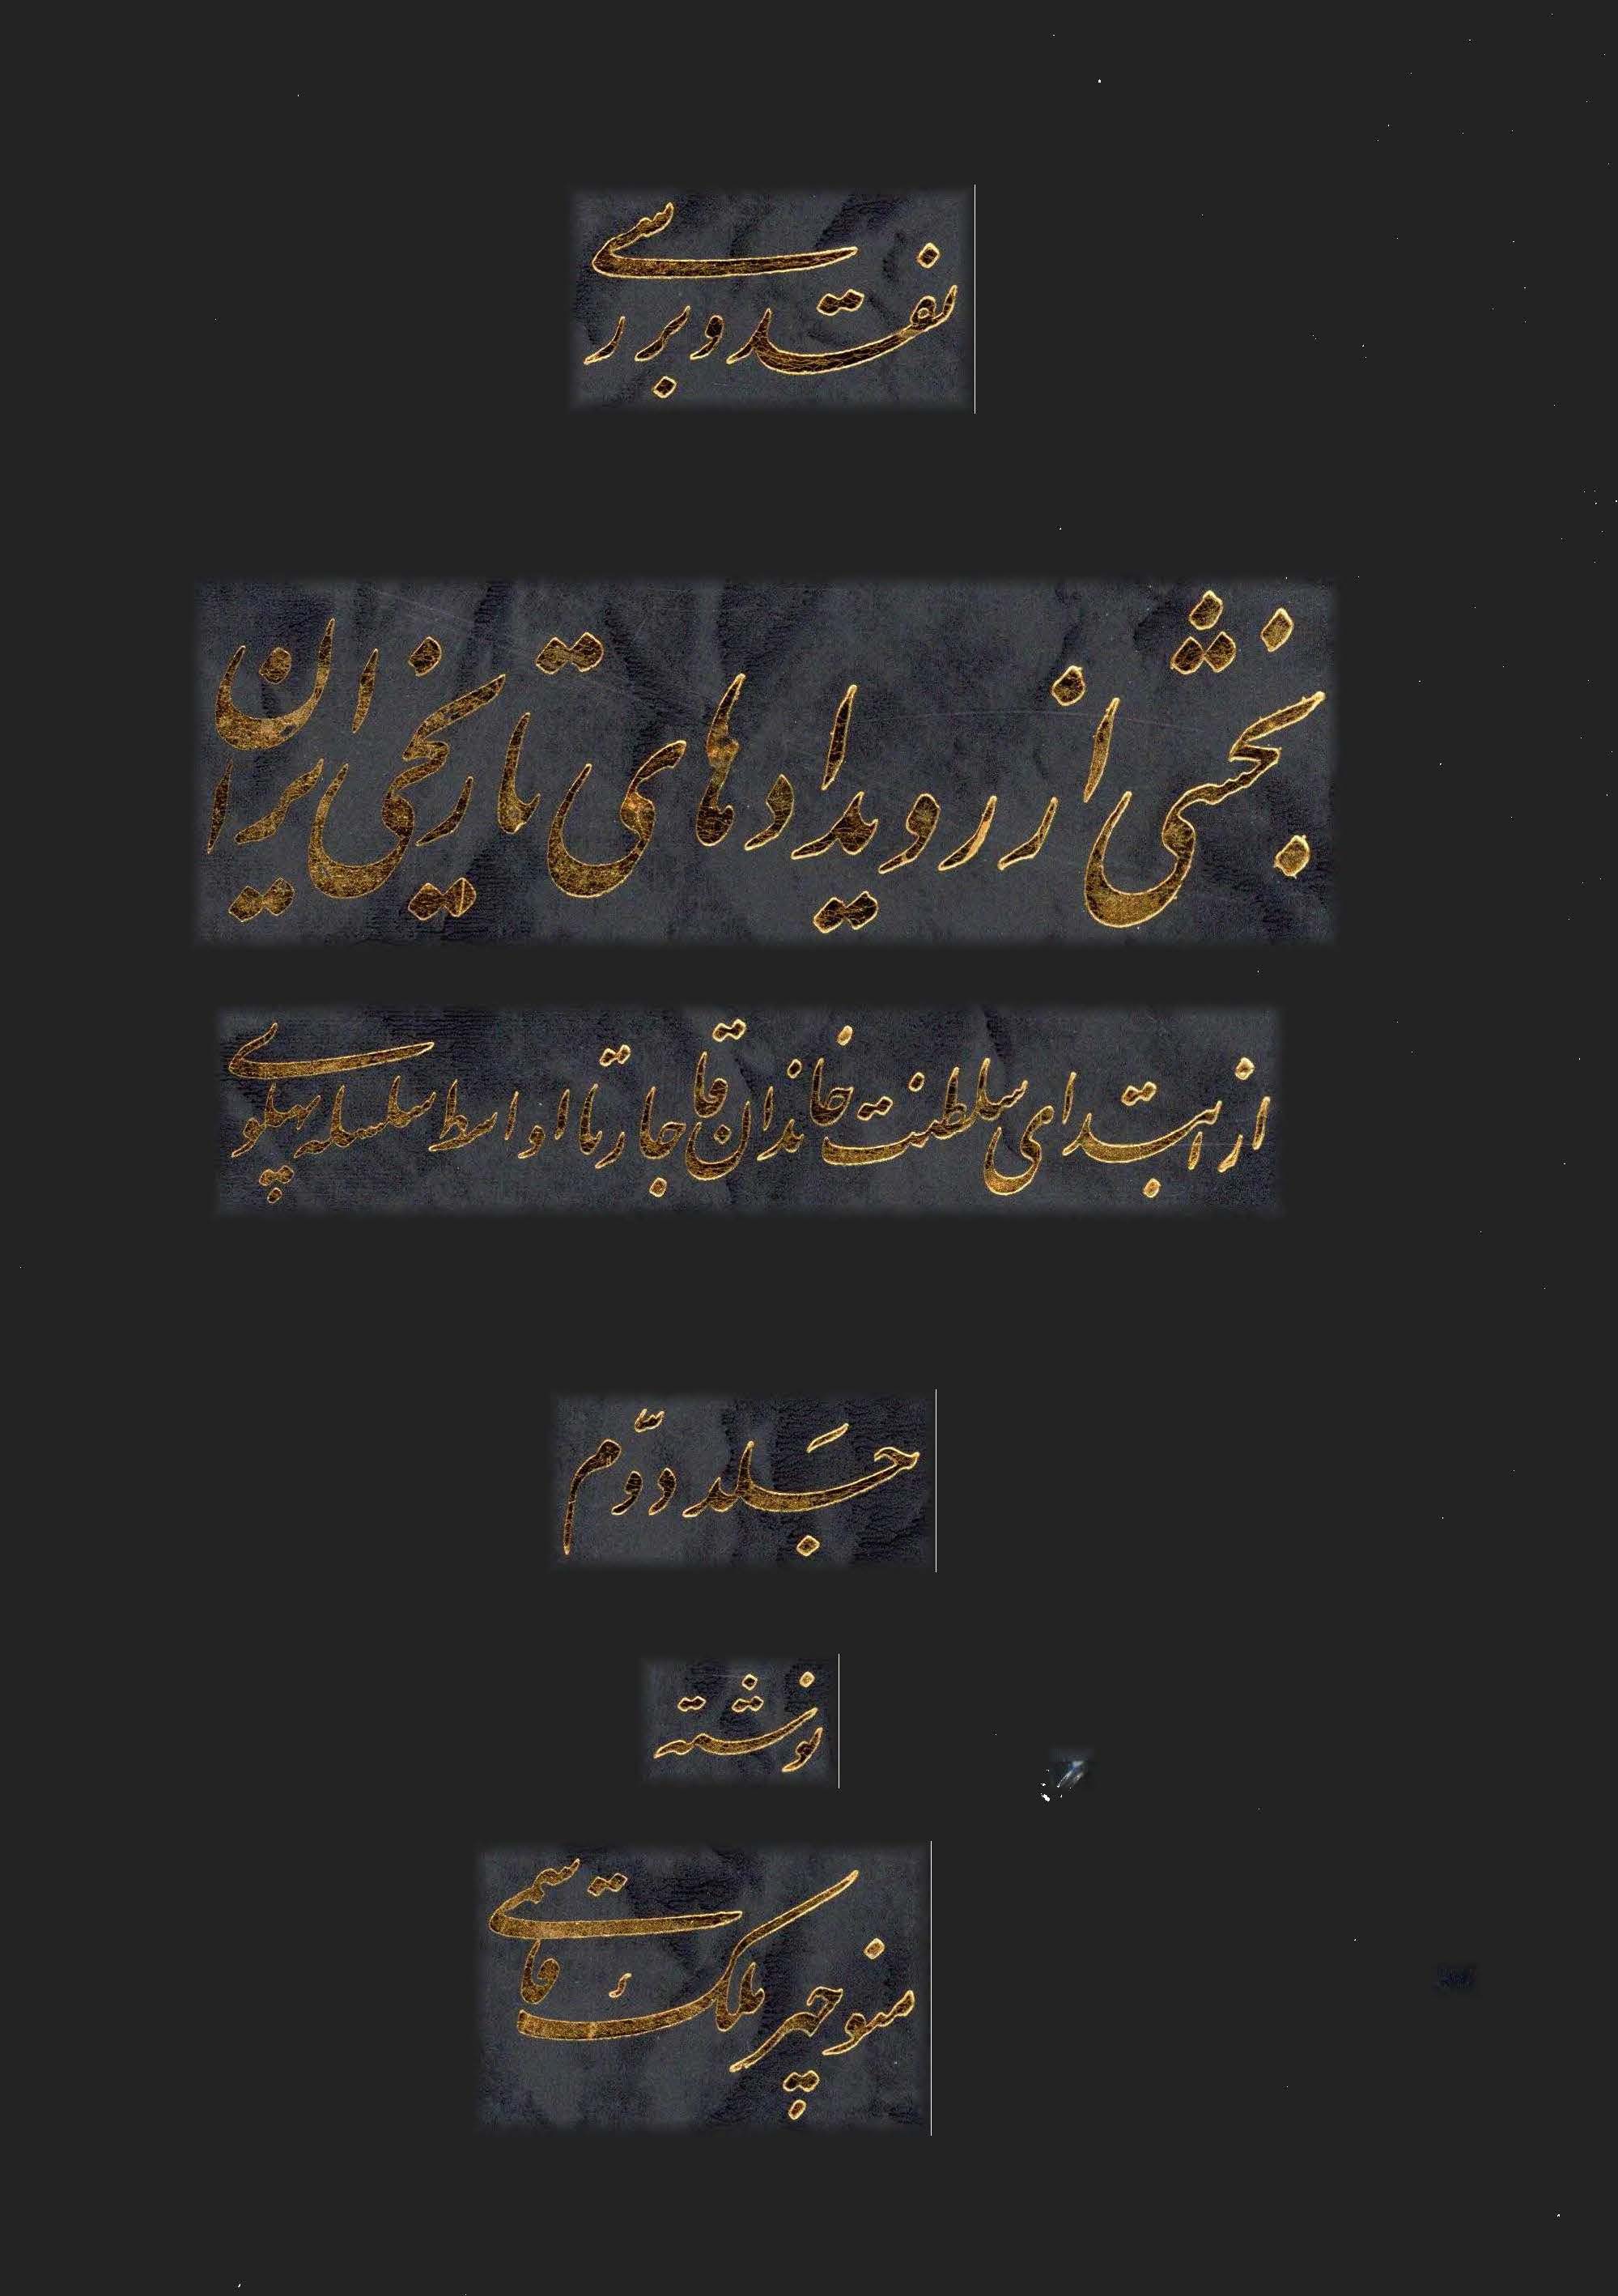 نقد و بررسی
بخشی از رویدادهای تاریخی ایران
از ابتدای سلطنت خاندان قاجار تا اواسط سلسله پهلوی
جَلد دوّم
نوشته
منوچهر ملک قاسمی